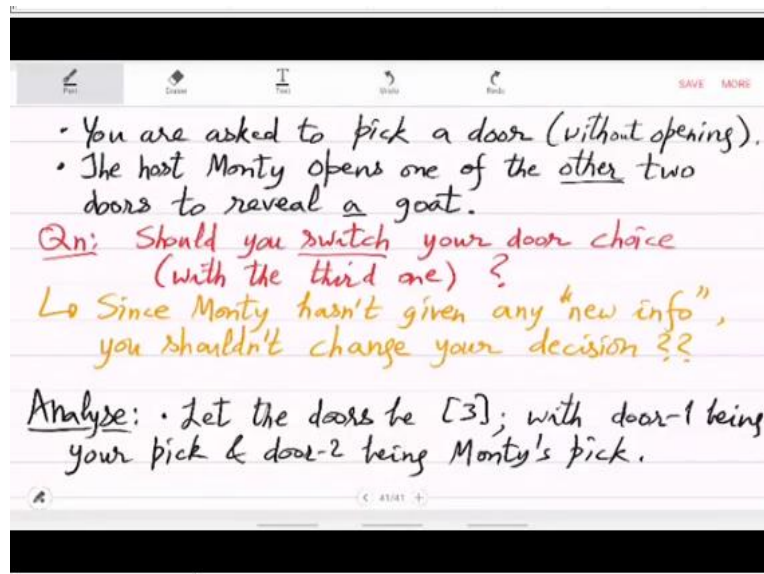 Pen Eraser Text Undo Redo SAVE MORE
· You are asked to pick a door (without opening).
· The host Monty opens one of the other two
doors to reveal a goat.
Qn: Should you switch your door choice
(with the third one) ?
↳ Since Monty hasn't given any "new info",
you shouldn't change your decision ??
Analyse: · Let the doors be [3]; with door-1 being
your pick & door-2 being Monty's pick.
41/41